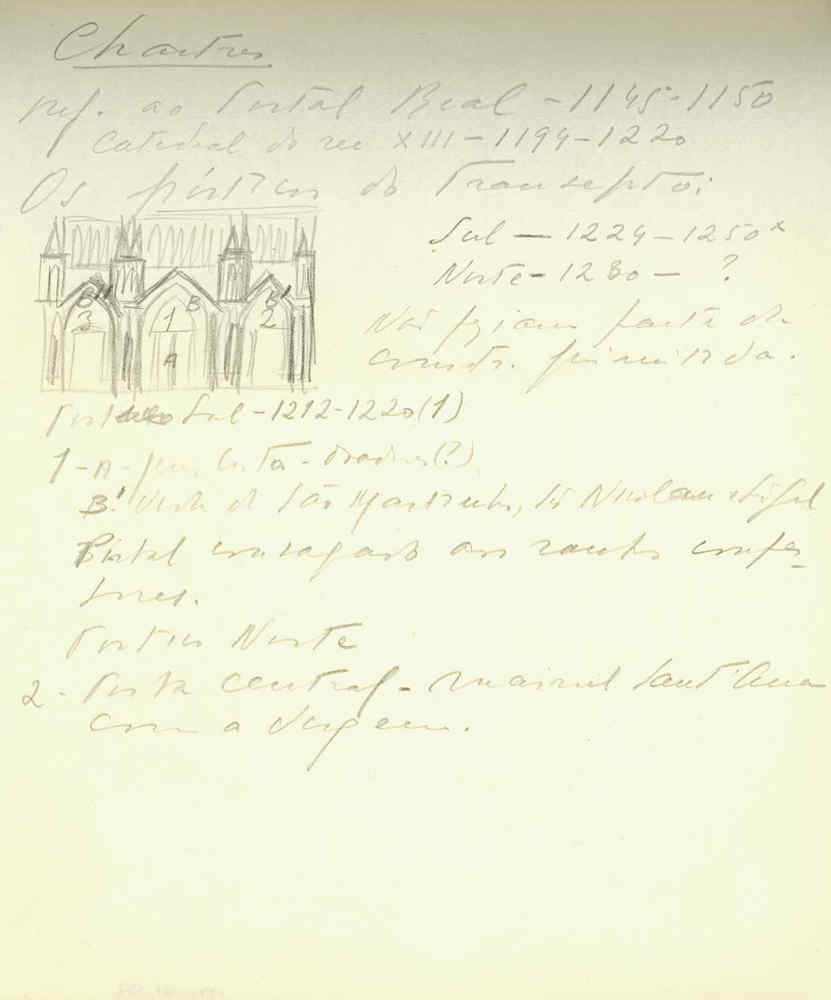 Chartres
ref. ao Portal Real - 1145-1150
Catedral do sec XIII - 1194-1220
Os pórticos do Transepto:
Sul - 1224-1250 x
Norte - 1230 - ?
Não faziam parte da
constr. primitiva.
B'' B B'
3 1 2
A
Sul - 1212-1220 (1)
1 - A - (?)
B' Vida de São Martinho, S. Nicolau
Portal consagrado aos santos confes-
sores.
Portico Norte
2 - Porta central - mainel Sant'Ana
com a Virgem.